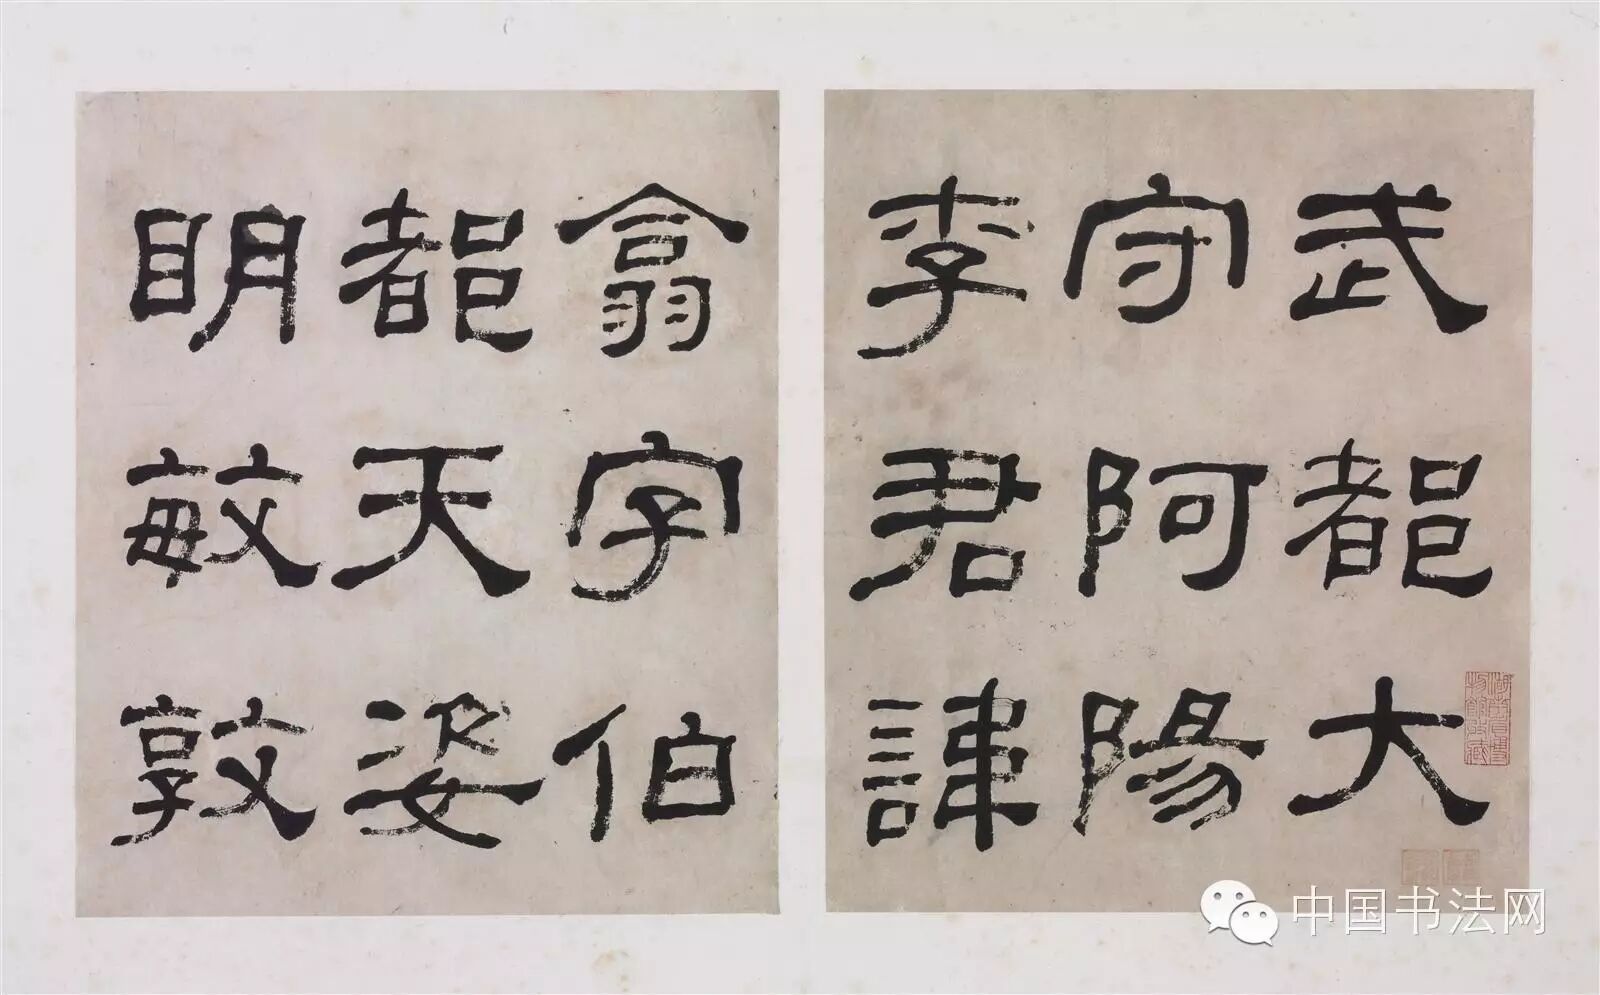 武都大
守阿陽
李君諱
翕字伯
都天姿
眀敏敦
中国书法网